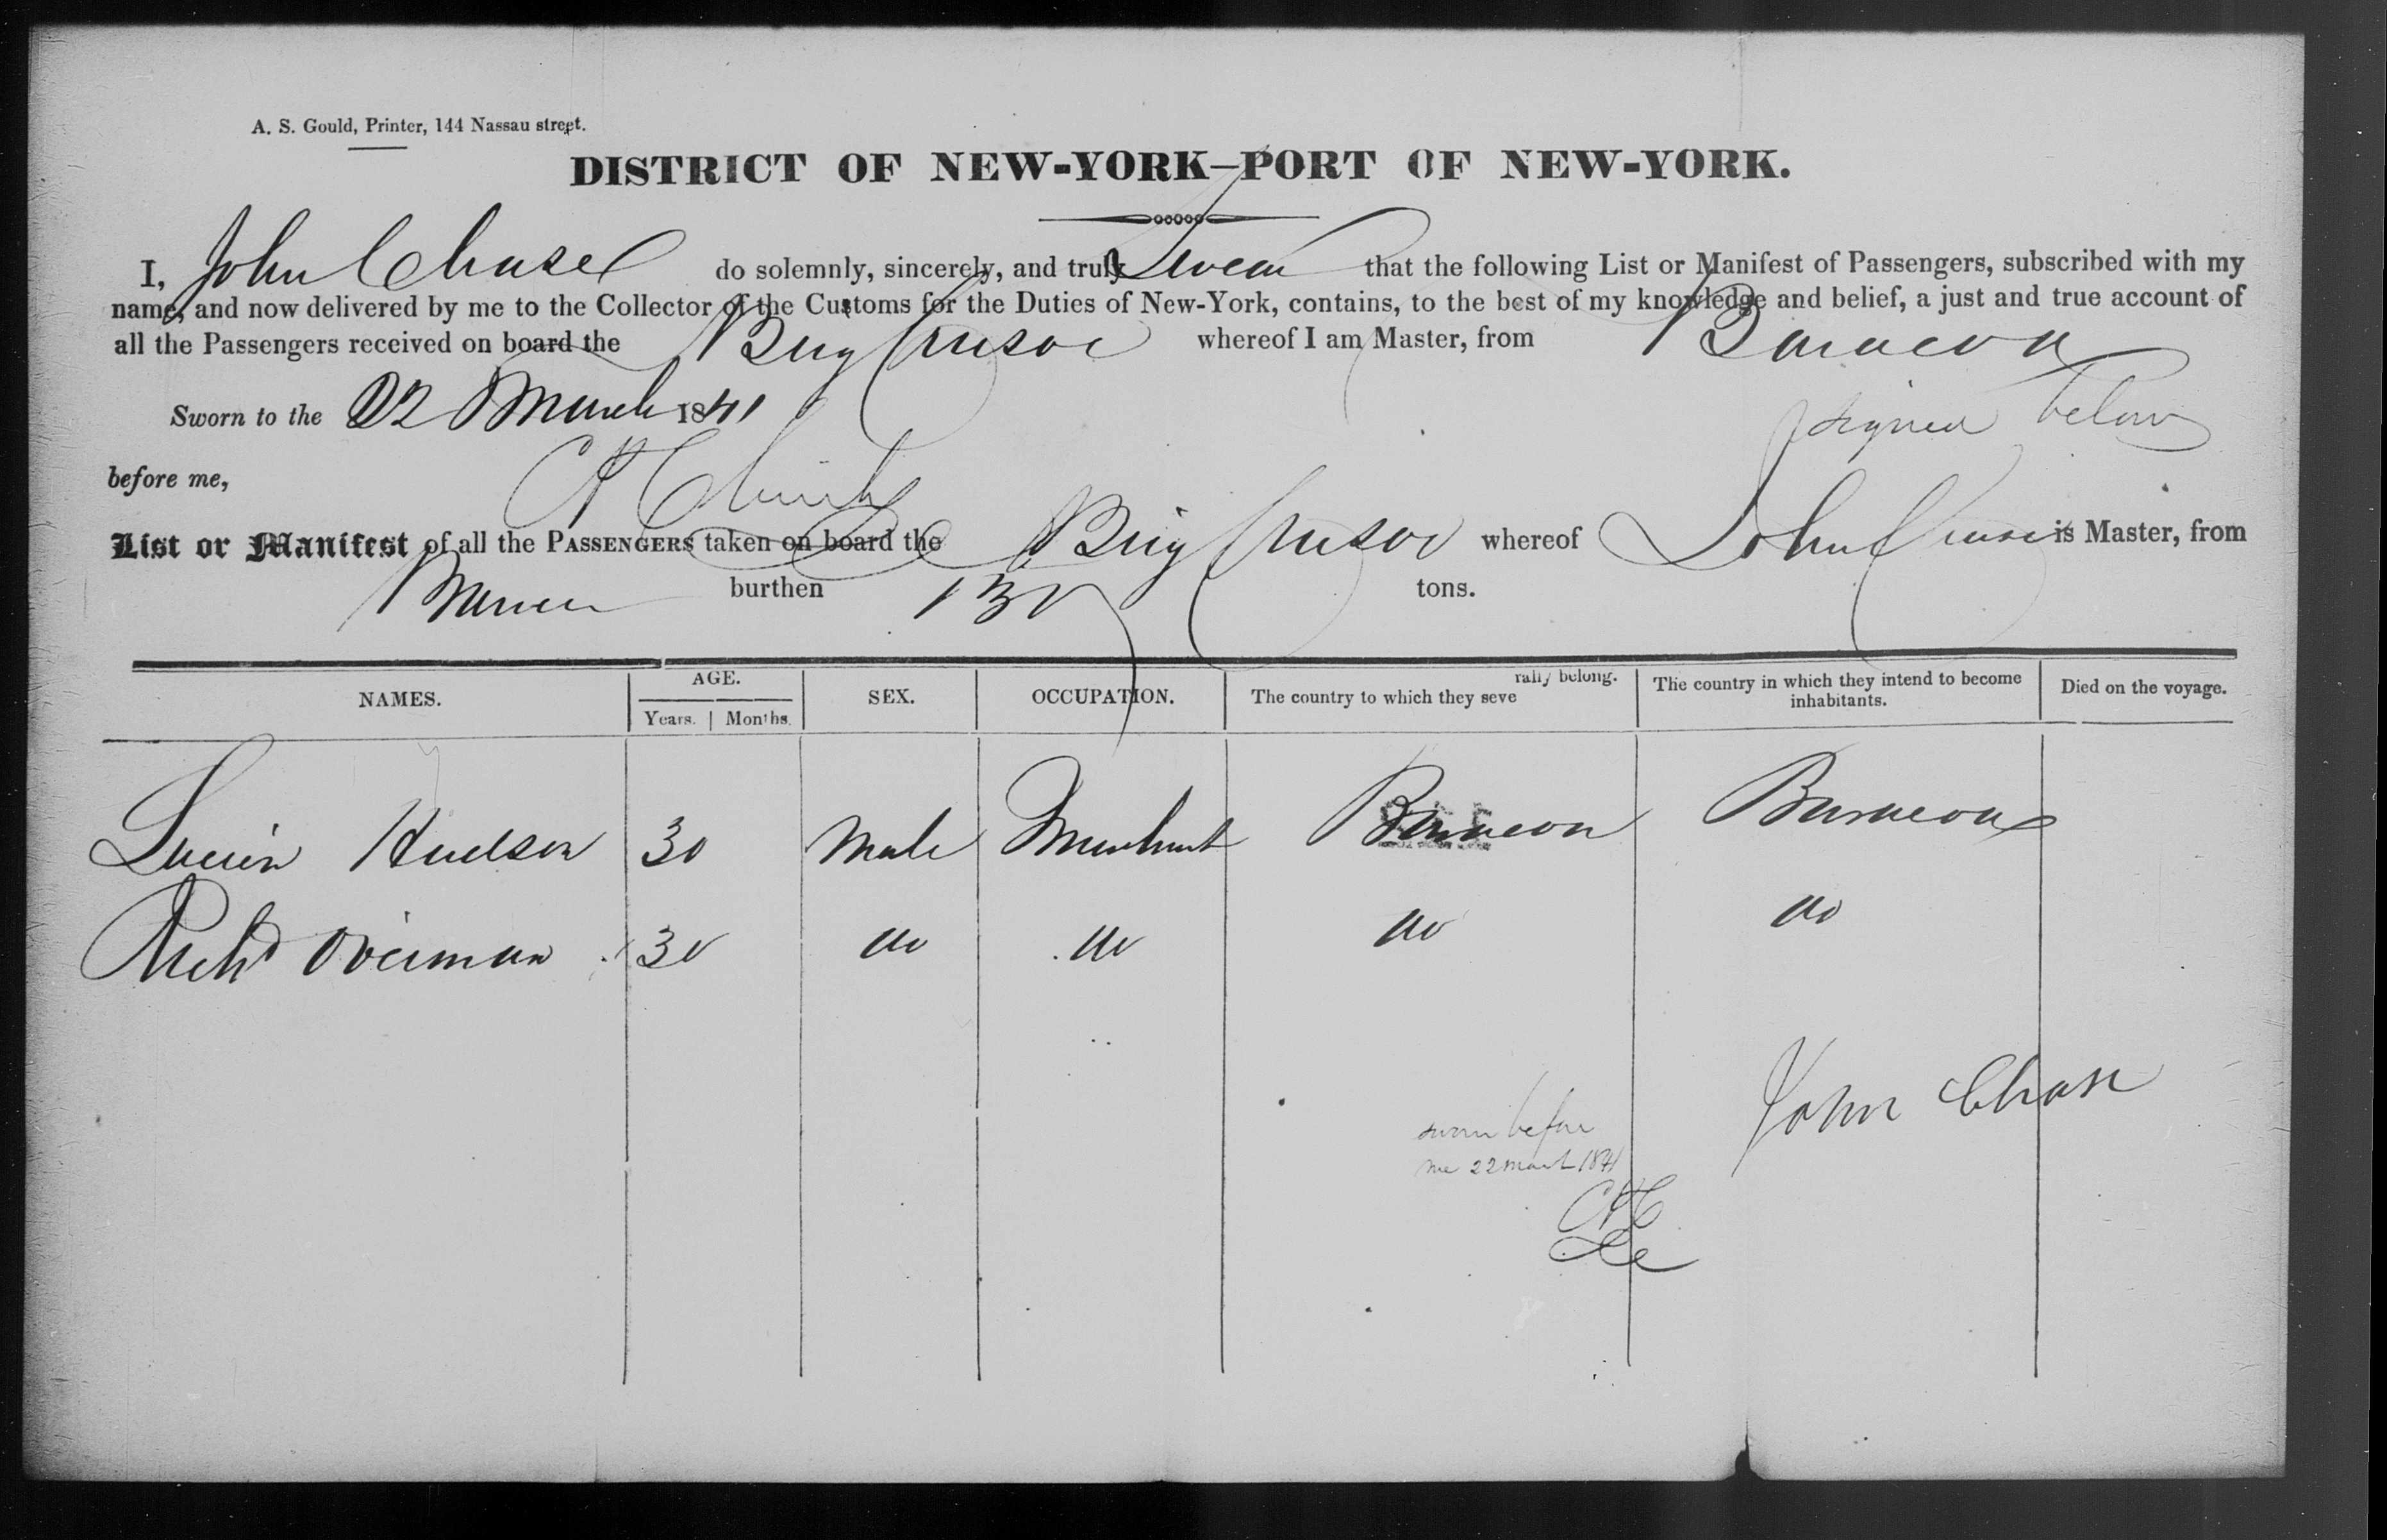 A. S. Gould, Printer, 144 Nassau street.
DISTRICT OF NEW-YORK—PORT OF NEW-YORK.
I, John Chase do solemnly, sincerely, and truly Swear that the following List or Manifest of Passengers, subscribed with my
name, and now delivered by me to the Collector of the Customs for the Duties of New-York, contains, to the best of my knowledge and belief, a just and true account of
all the Passengers received on board the Brig Crusoe whereof I am Master, from Baracoa
Sworn to the 22 March 1841 signed below
before me,
List or Manifest of all the PASSENGERS taken on board the Brig Crusoe whereof John Chase is Master, from
burthen 130 tons.
NAMES. AGE. SEX. OCCUPATION. The country to which they severally belong. The country in which they intend to become inhabitants. Died on the voyage.
Years. Months.
Lucien Hudson 30 Male Merchant Baracoa Baracoa
Richd Overman 30 do do do do
John Chase
sworn before
me 22 March 1841